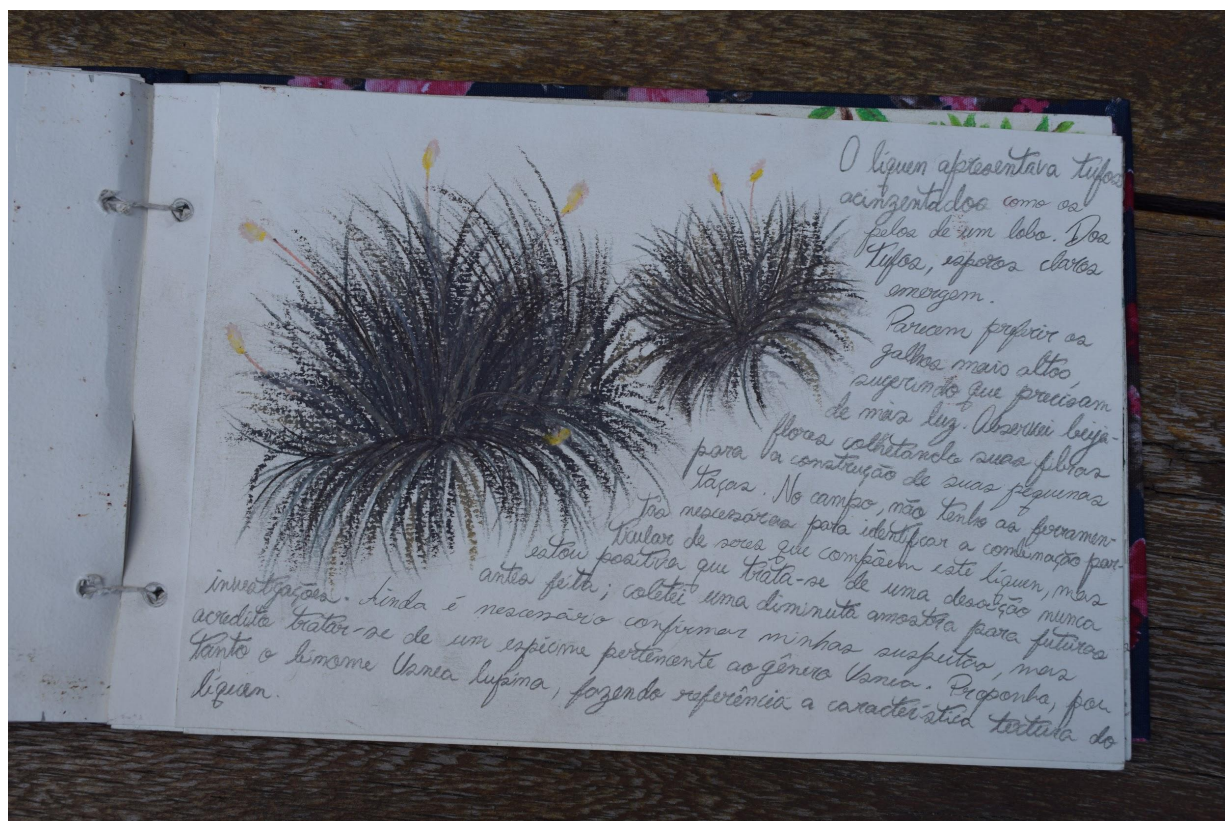 O líquen apresentava tufos
acinzentados como os
pelos de um lobo. Dos
tufos, esporos claros
emergem.
Parecem preferir os
galhos mais altos,
sugerindo que precisam
de mais luz. Observei beija-
flores colhetando suas fibras
para a construção de suas pequenas
taças. No campo, não tenho as ferramen-
tas nescessárias para identificar a combinação par-
ticular de seres que compõem este líquen, mas
estou positiva que trata-se de uma descrição nunca
antes feita; coletei uma diminuta amostra para futuras
investigações. Ainda é nescessário confirmar minhas suspeitas, mas
acredito tratar-se de um espécime pertencente ao gênero Usnea. Proponho, por
tanto o binome Usnea lupina, fazendo referência a característica textura do
líquen.